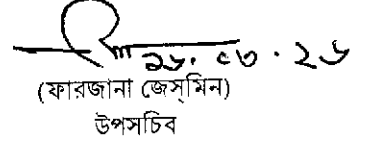 ২৬.০৩.২৬
(ফারজানা জেস্‌মিন)
উপসচিব